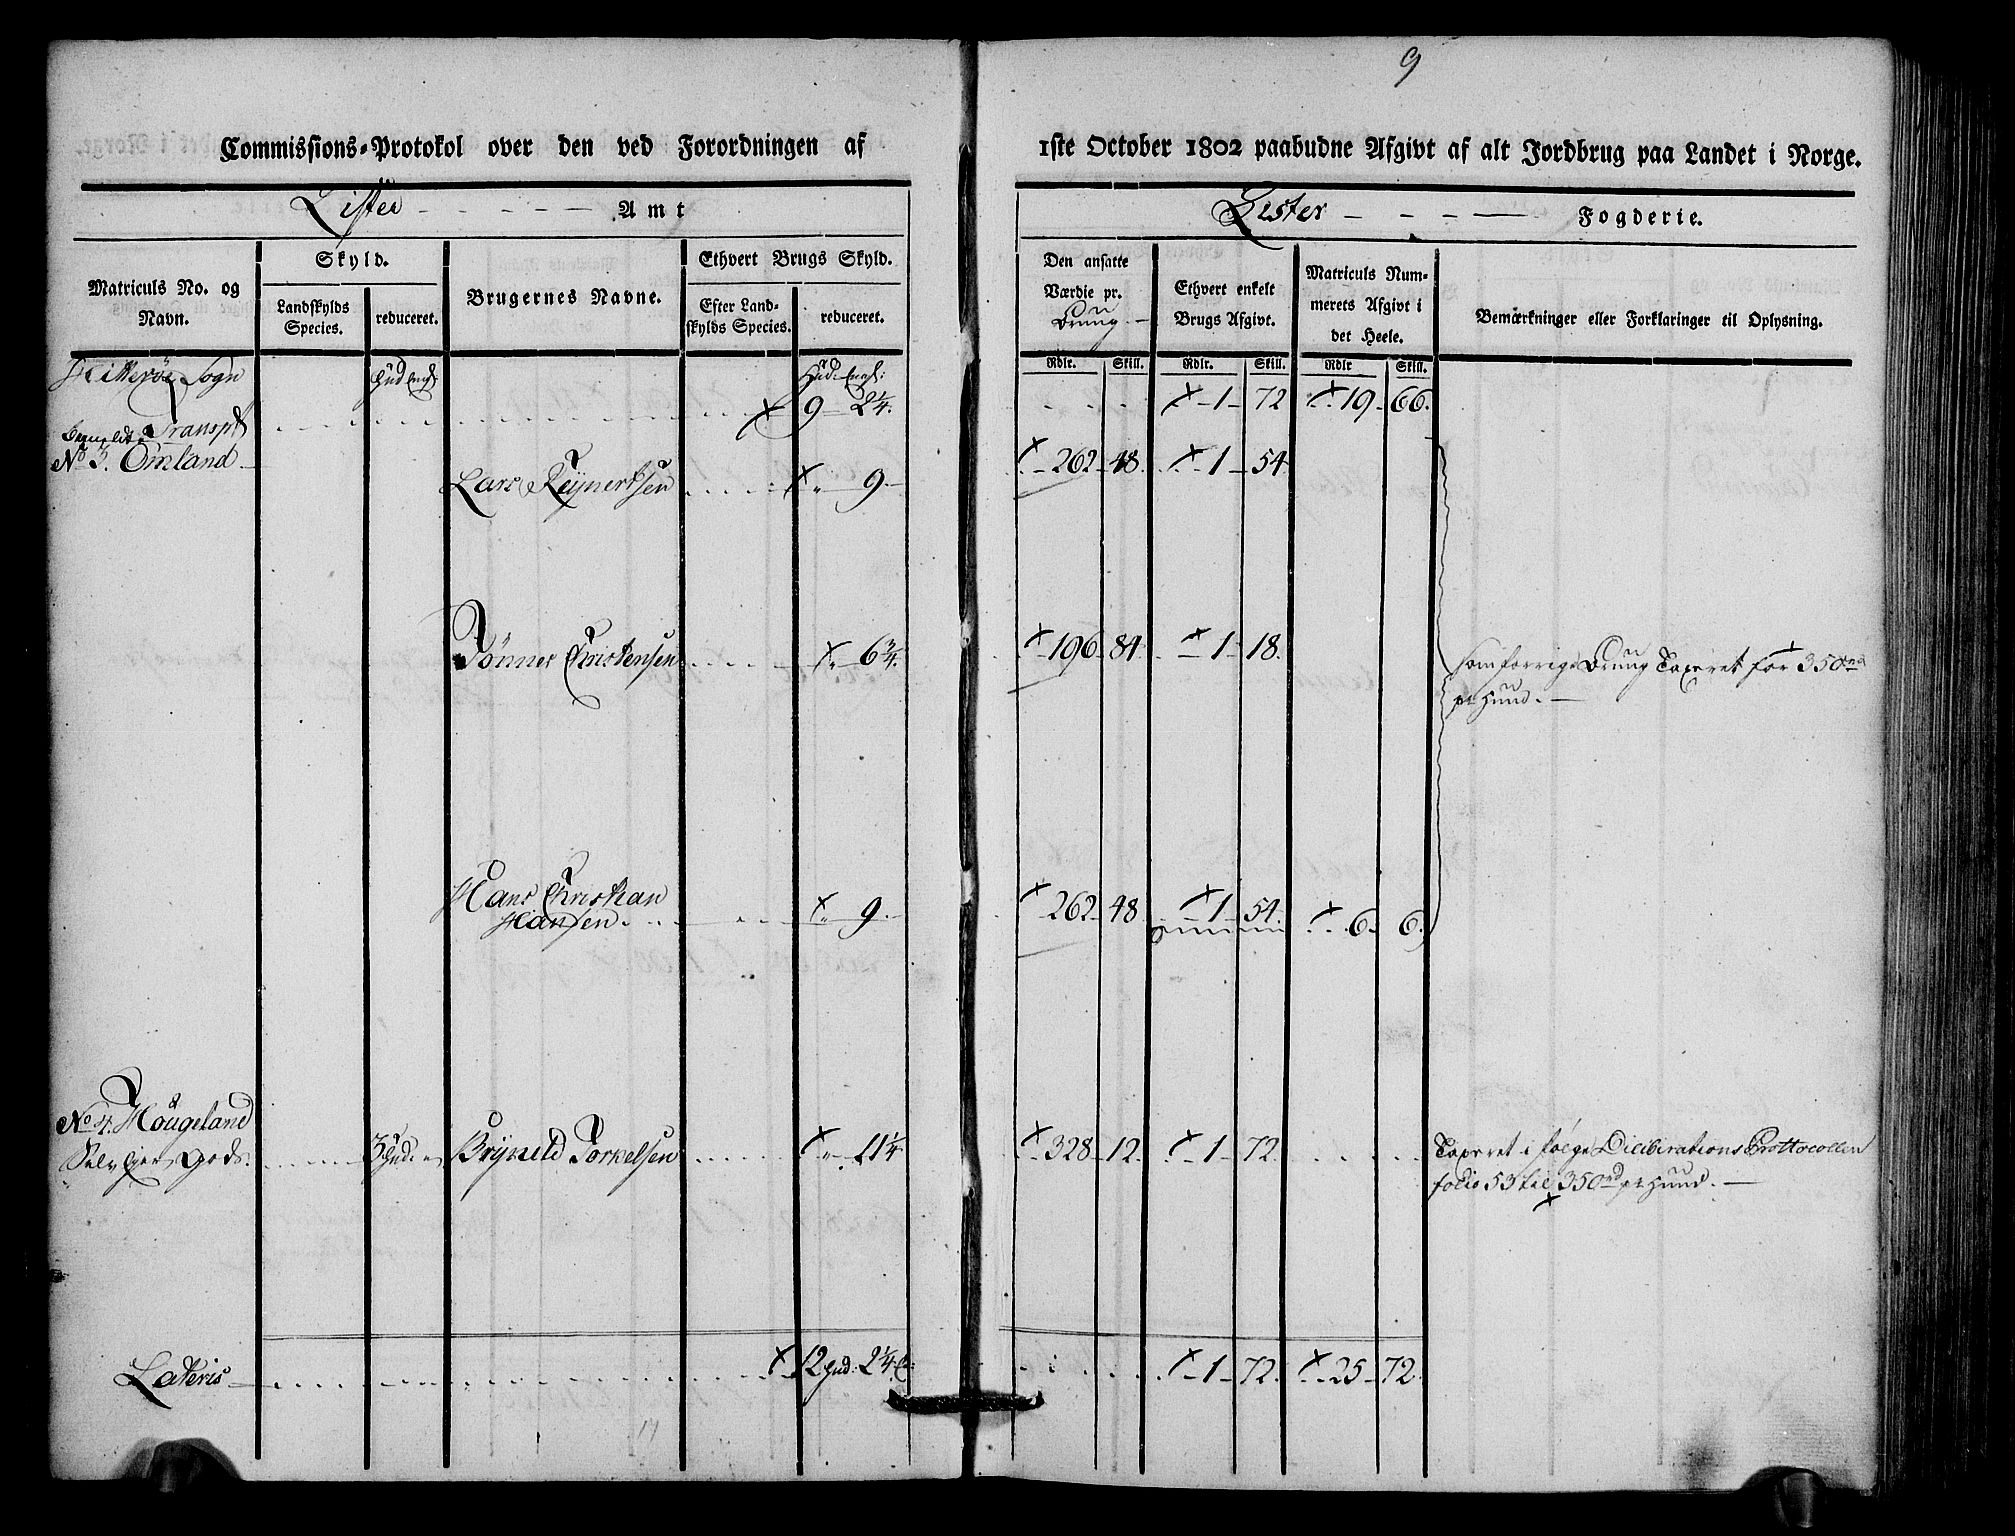 9
Commissions-Protokol over den ved Forordningen af 1ste October 1802 paabudne Afgivt af alt Jordbrug paa Landet i Norge.
Lister Amt
Lister Fogderie.
Matriculs No. og Navn.
Skyld.
Landskylds Species.
reduceret.
Brugernes Navne.
Ethvert Brugs Skyld.
Efter Landskylds Species.
reduceret.
Den ansatte Værdie pr. Brug.
Ethvert enkelt Brugs Afgivt.
Matriculs Nummerets Afgivt i det Heele.
Bemærkninger eller Forklaringer til Oplysning.
Rdlr. Skill. Rdlr. Skill. Rdlr Skill.
Hitterøe Sogn Hud Engl: Hud: Engl:
Transpt × 9 2¼. × 1 72 × 19 66.
No 3. Omland
Lars Reÿnertsen × „ 9. × 262 48. × 1 54
Tönnes Christensen × „ 6¾. × 196 84. × 1 18. som forrige Brug Taxeret for 350 rd
pr Hud.
Hans Christian
Hansen. × „ 9. × 262 48 × 1 54. × 6 6.
No 4. Hougeland
Selv Eier Gods. 3 Hud. „ Brÿnild Torkelsen × „ 11¼ × 328 12. × 1 72. Taxeret i følge Diliberations Prottocollen
folio 53 til 350 rd pr Hud.
Lateris × 12 Hud: 2¼ E: × 1 72. × 25 72.